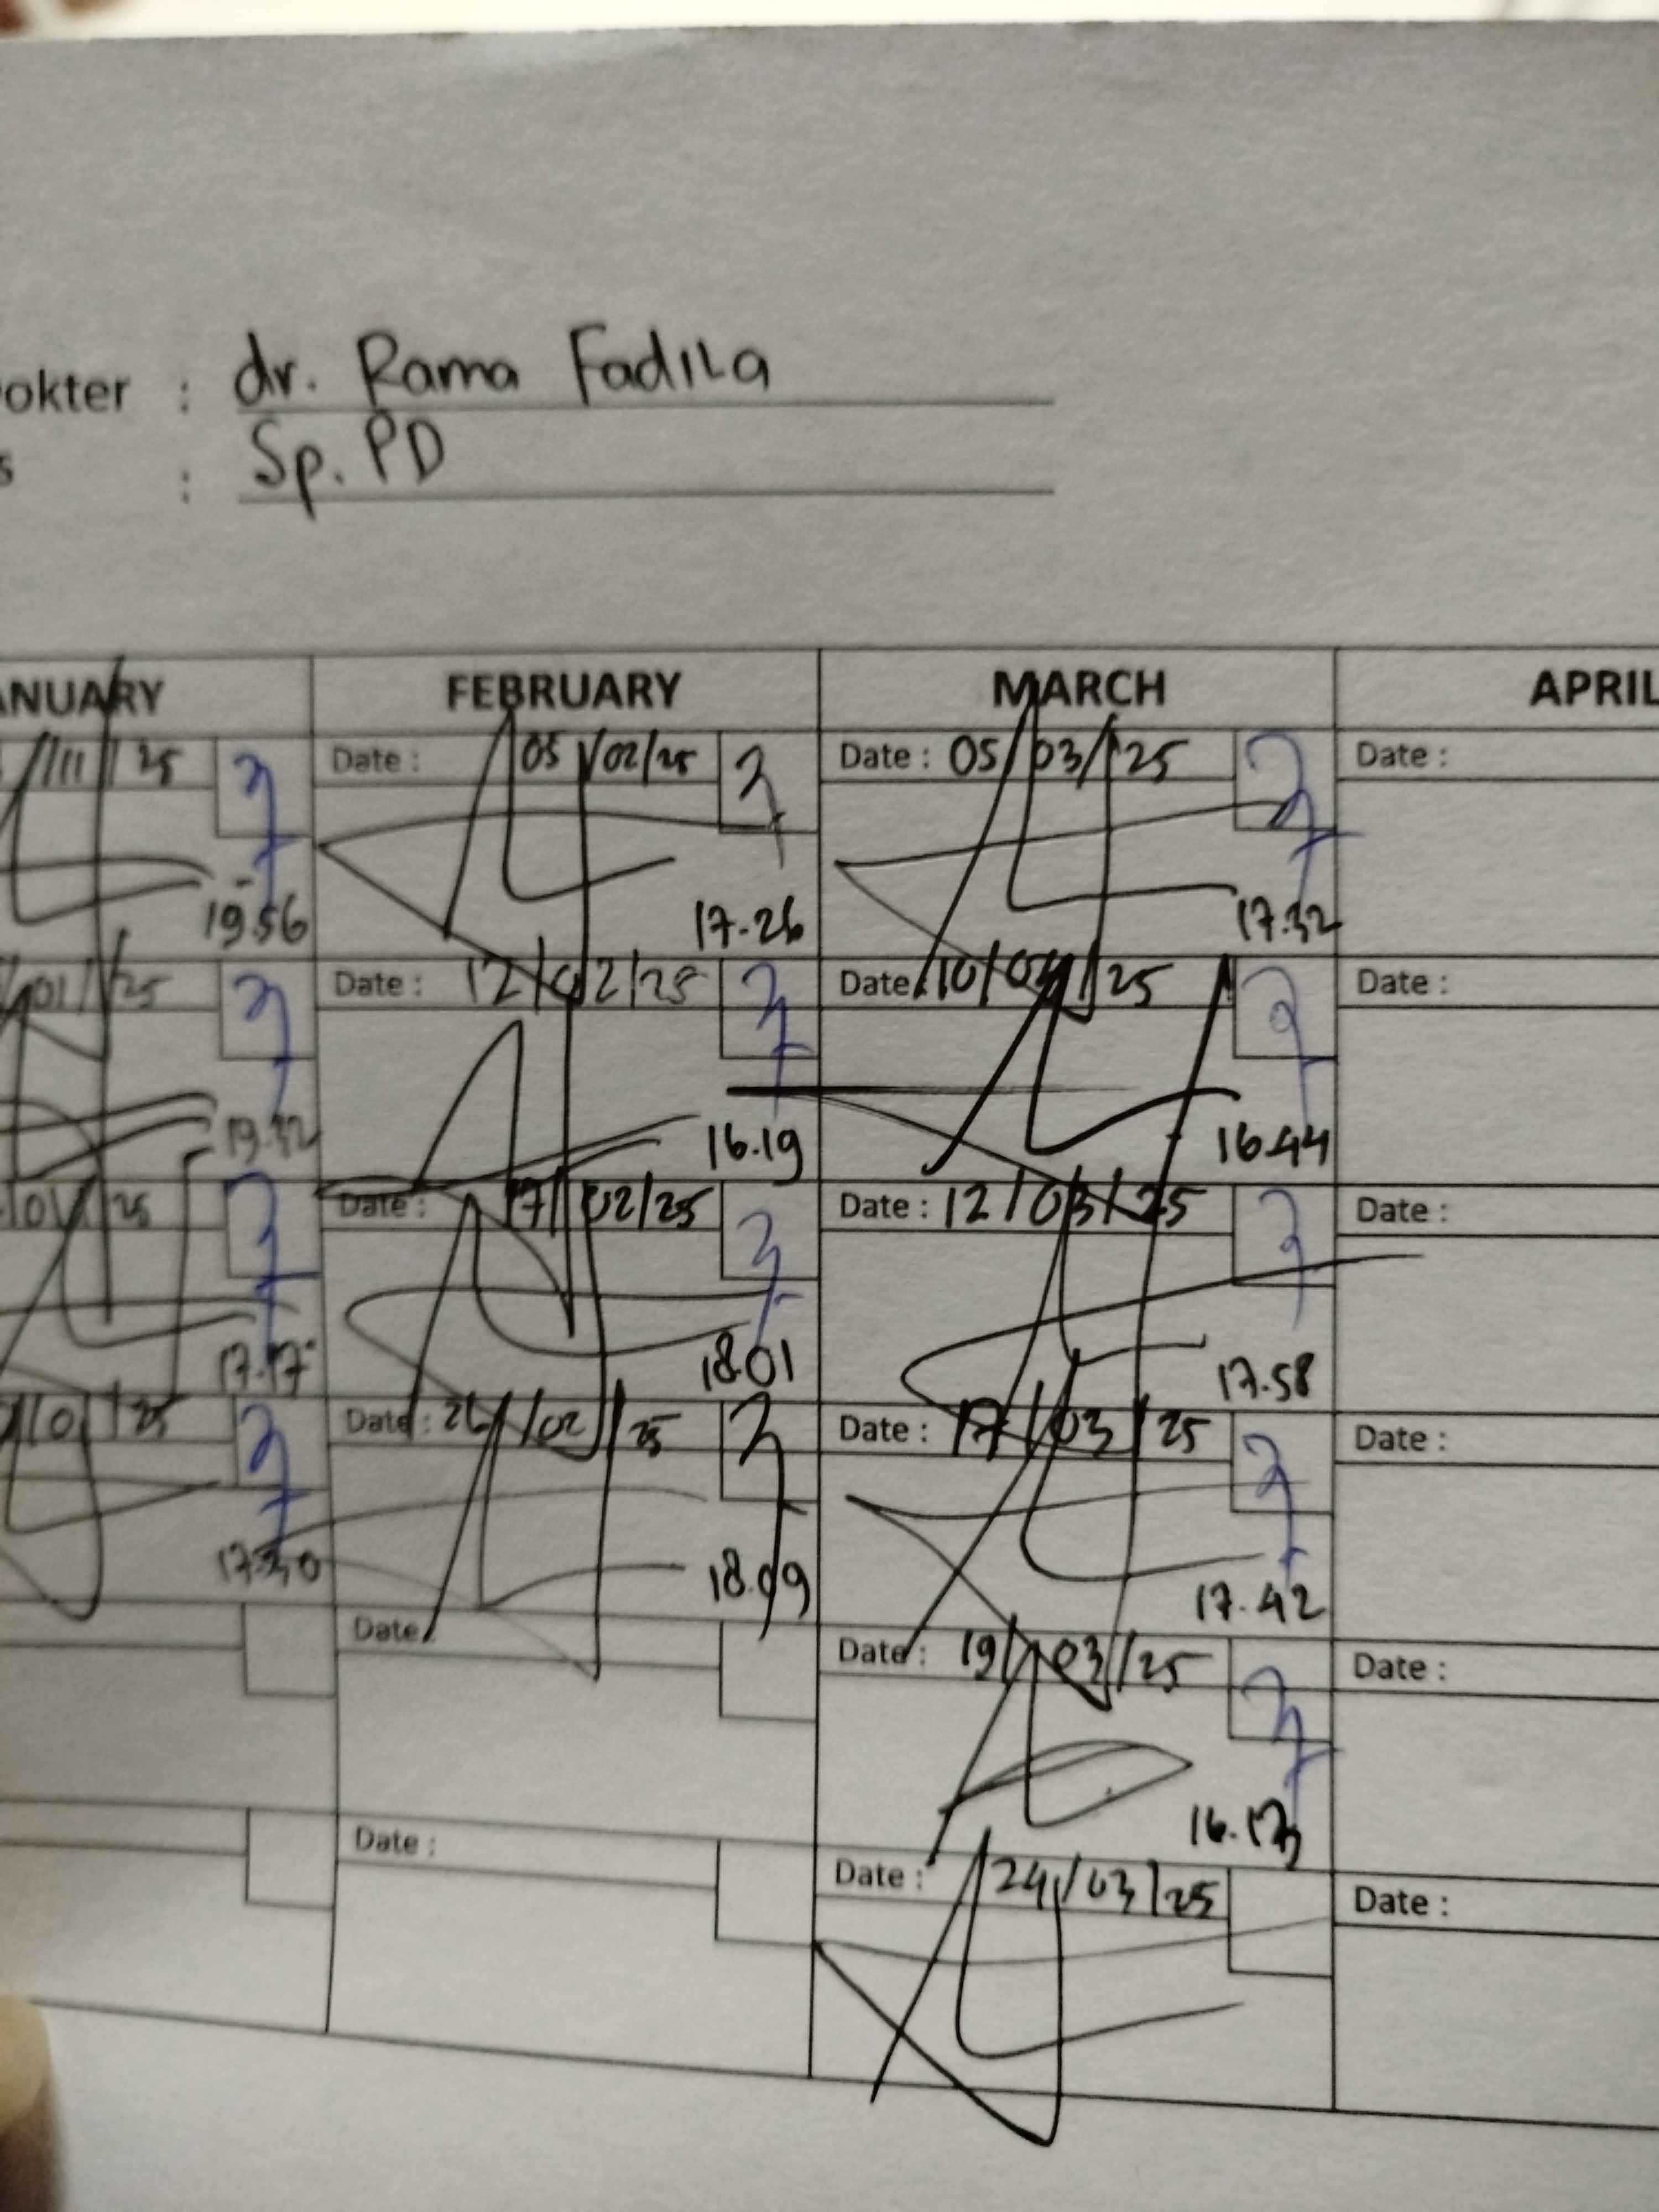 okter : dr. Rama Fadila
s : Sp. PD
ANUARY FEBRUARY MARCH APRIL
25 Date : 05/02/25 Date : 05/03/25 Date :
19.56 17.26 17.32
01/25 Date : 12/02/25 Date : 10/03/25 Date :
19.32 16.19 16.44
25 Date : 17/02/25 Date : 12/03/25 Date :
17.17 18.01 17.58
25 Date : 26/02/25 Date : 17/03/25 Date :
18.09 17.42
Date : Date : 19/03/25 Date :
Date : Date : 24/03/25 Date :